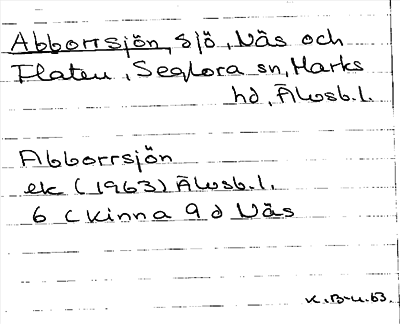 Abborrsjön, sjö, Näs och
Flaten, Seglora sn, Marks
hd, Älvsb. l.
Abborrsjön
ek (1963) Älvsb. l.
6 C Kinna 9 d Näs
K. B-n. 63.